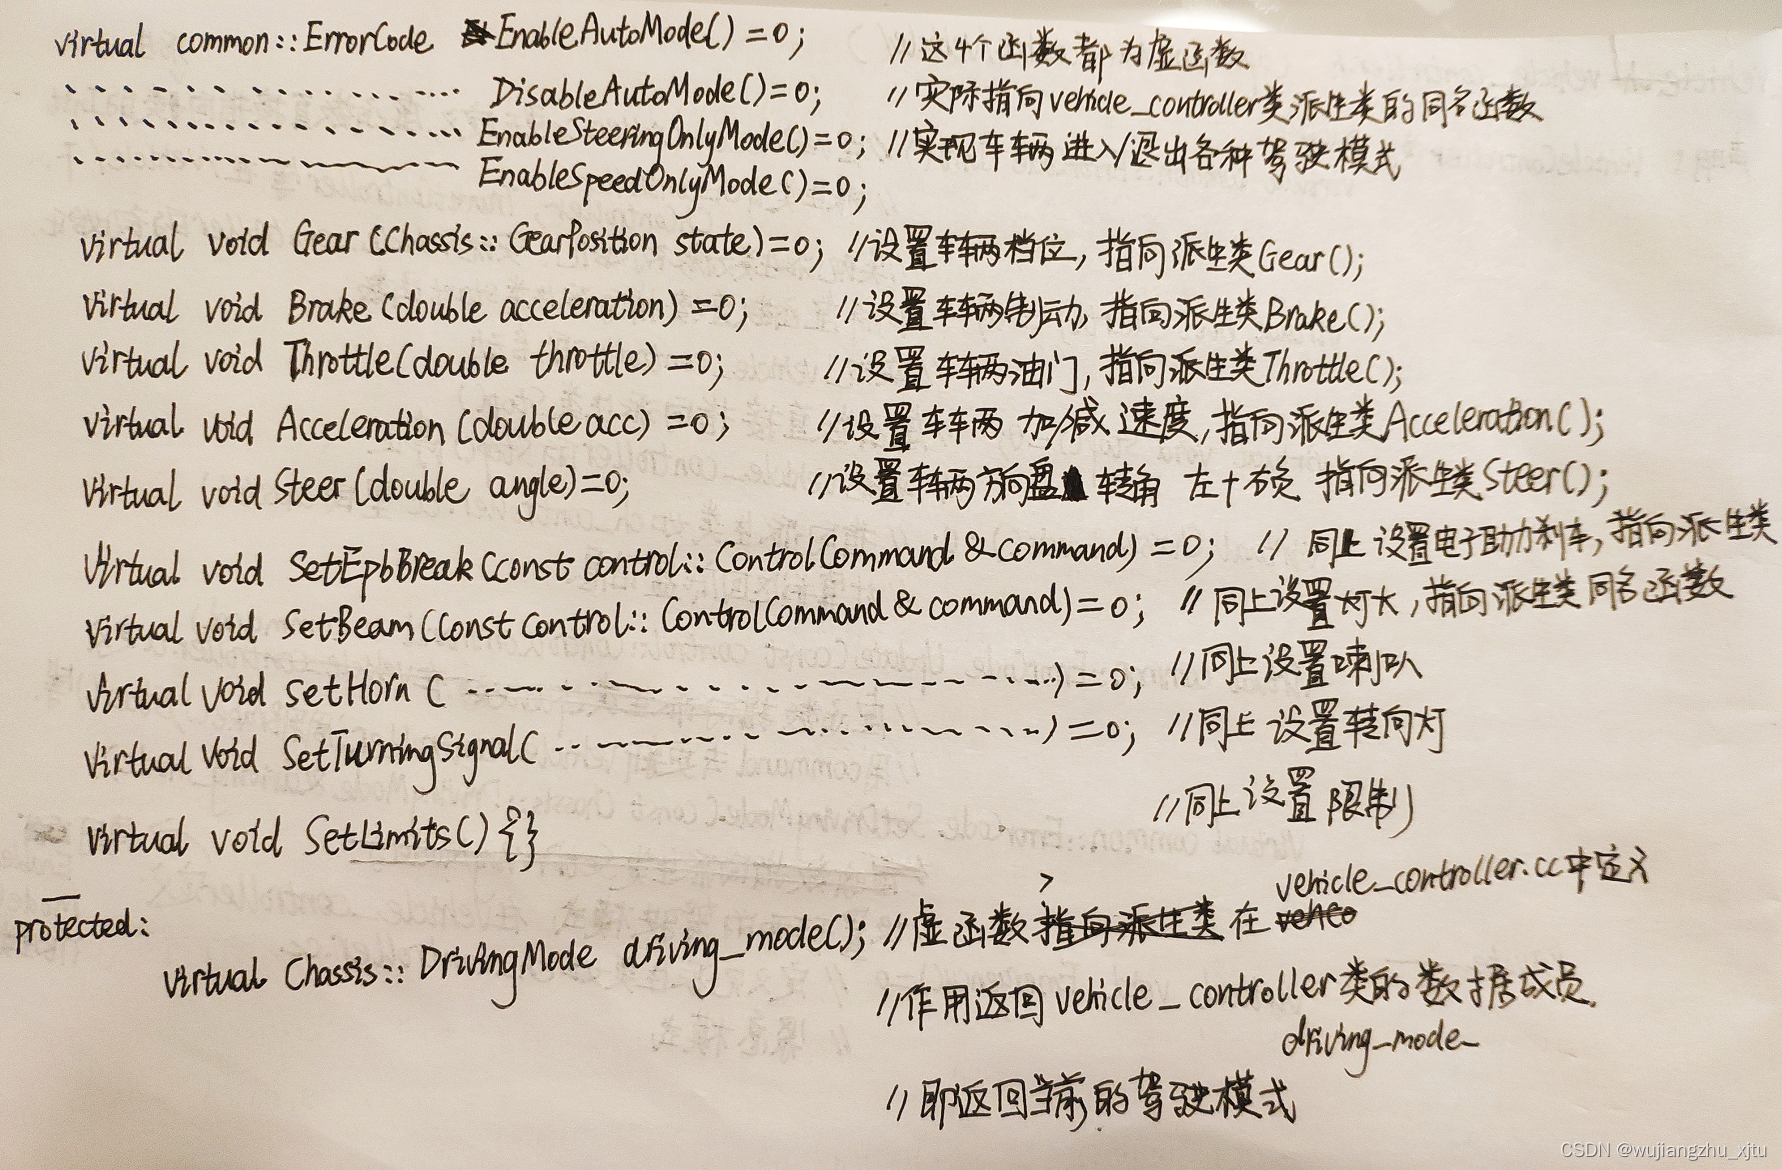 virtual common::ErrorCode EnableAutoMode()=0; //这4个函数都为虚函数
DisableAutoMode()=0; //实际指向vehicle_controller类派生类的同名函数
EnableSteeringOnlyMode()=0; //实现车辆进入/退出各种驾驶模式
EnableSpeedOnlyMode()=0;
virtual void Gear(Chassis::GearPosition state)=0; //设置车辆档位,指向派生类Gear();
virtual void Brake(double acceleration)=0; //设置车辆制动,指向派生类Brake();
virtual void Throttle(double throttle)=0; //设置车辆油门,指向派生类Throttle();
virtual void Acceleration(double acc)=0; //设置车辆加/减速度,指向派生类Acceleration();
virtual void Steer(double angle)=0; //设置车辆方向盘转角 左+右负 指向派生类Steer();
Virtual void SetEpbBreak(const control::ControlCommand &command)=0; //同上设置电子助力刹车,指向派生类
virtual void SetBeam(const control::ControlCommand & command)=0; //同上设置大灯,指向派生类同名函数
virtual void setHorn( )=0; //同上设置喇叭
Virtual void SetTurningSignal( )=0; //同上设置转向灯
//同上设置限制
virtual void SetLimits(){}
protected:
vehicle_controller.cc中定义
virtual Chassis::DrivingMode driving_mode(); //虚函数指向派生类在
//作用返回vehicle_controller类的数据成员
driving_mode_
//即返回当前的驾驶模式
CSDN @wujiangzhu_xjtu